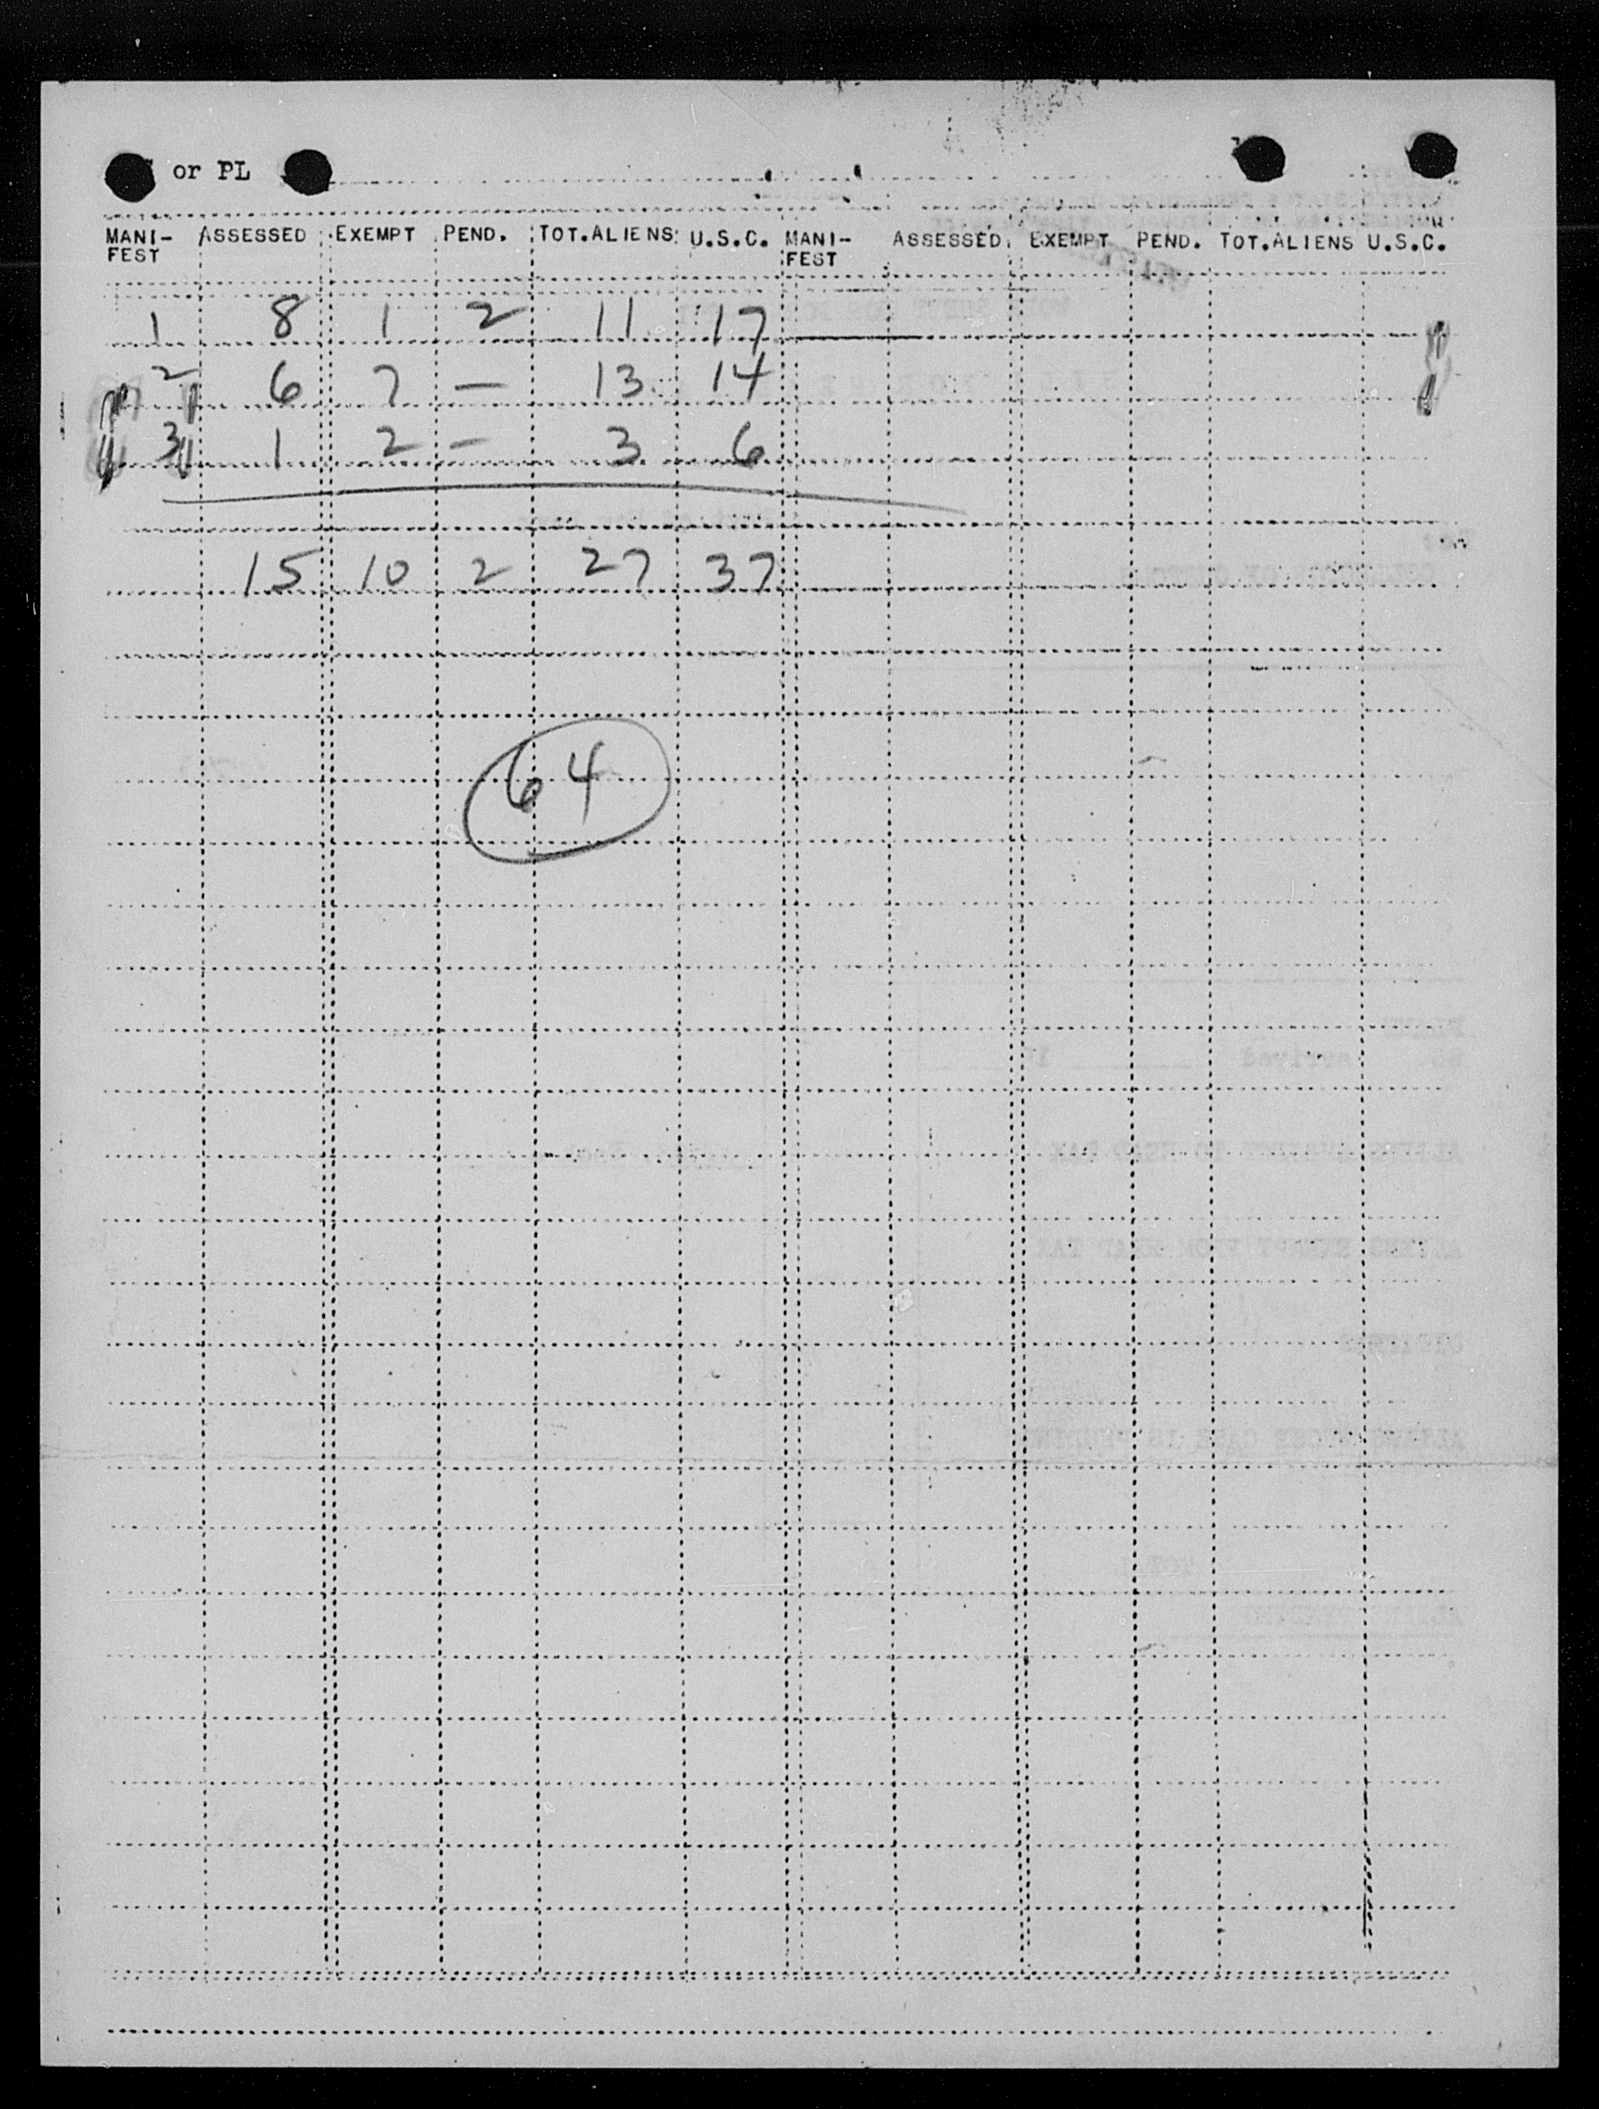 or PL
MANI- ASSESSED EXEMPT PEND. TOT.ALIENS U.S.C. MANI- ASSESSED EXEMPT PEND. TOT.ALIENS U.S.C.
FEST FEST
1 8 1 2 11 17
2 6 7 — 13 14
3 1 2 — 3 6
15 10 2 27 37
64